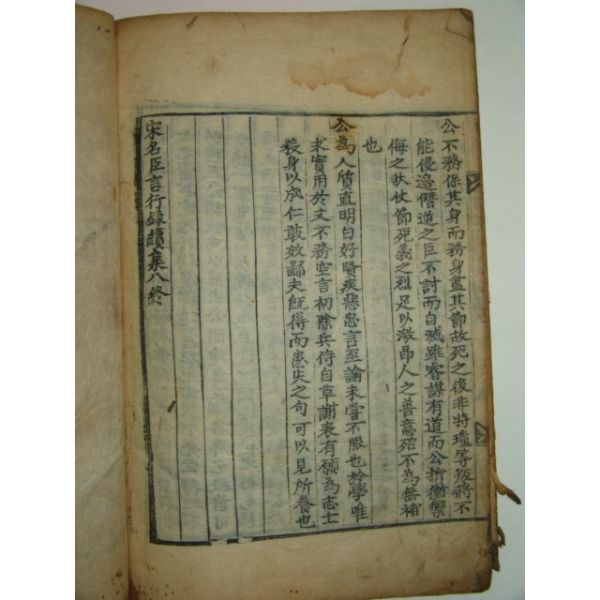 公不務保其身而務身盡其節故死之後非特瓊等叛將不
能侵邉僭道之臣不討而自滅雖睿謀有道而公折衝禦
侮之狀仗節死義之烈足以激昂人之善意殆不為無補
也
公為人質直明白好賢疾惡忠言至論未嘗不服也於學唯
求實用於文不務空言初除兵侍自草謝表有願為志士
殺身以成仁敢效鄙夫旣得而患失之句可以見所養也
宋名臣言行録續集八終